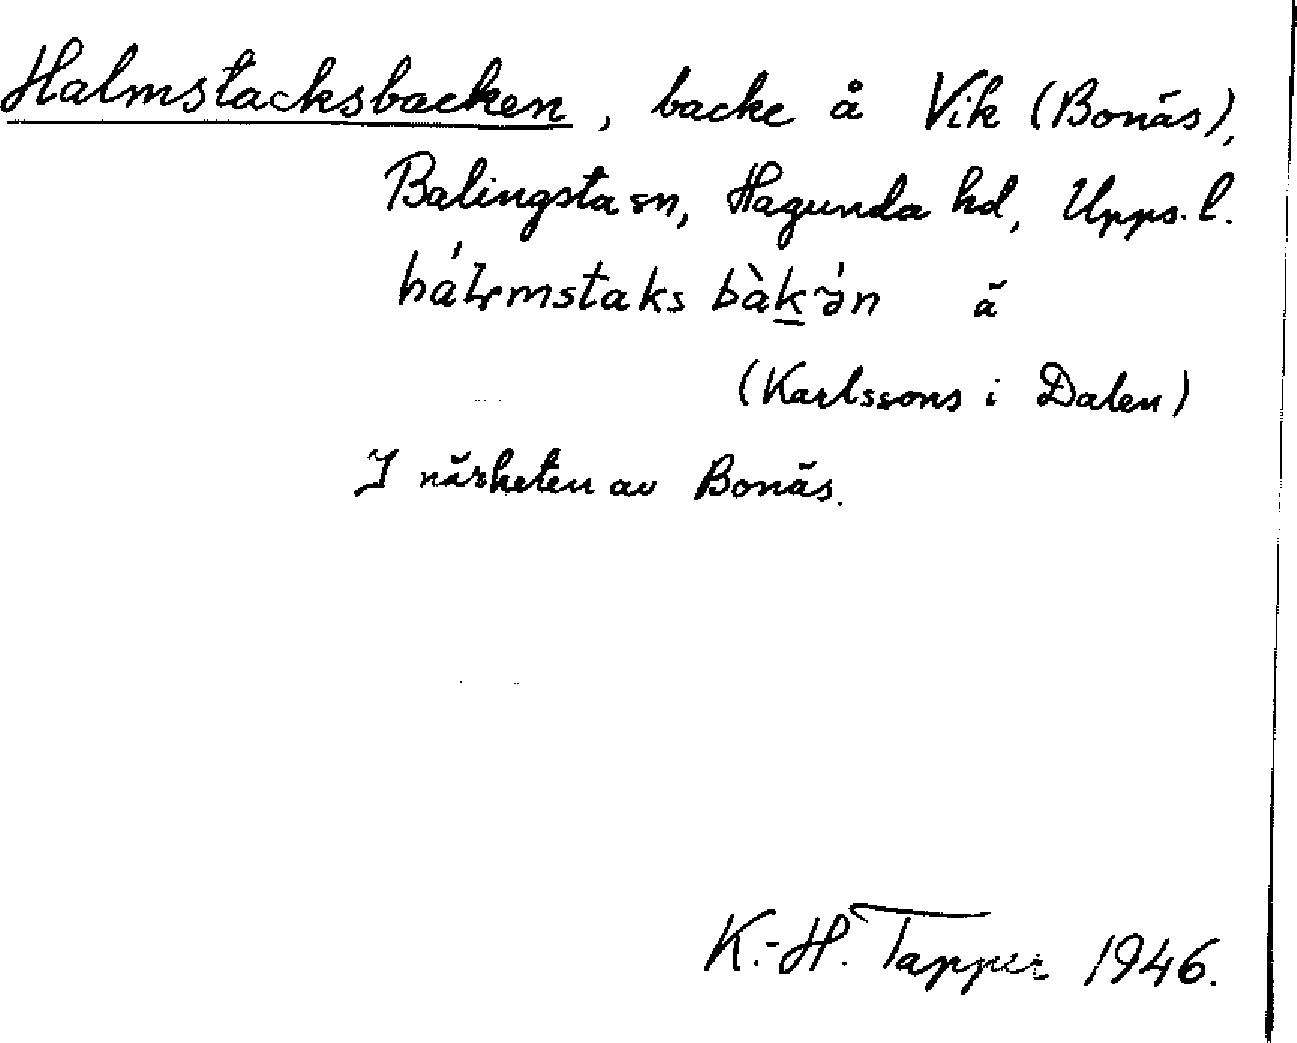 Halmstacksbacken, backe å Vik (Bonäs),
Balingsta sn, Hagunda hd, Upps. l.
bàkən ä
(Karlssons i Dalen)
I närheten av Bonäs.
K.-H. Tapper 1946.